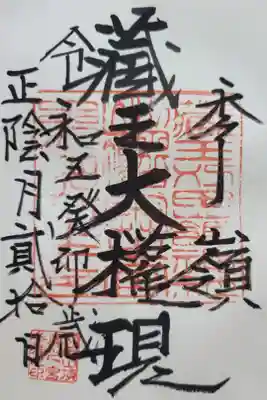 嶺
藏王大権現
令和五癸卯歳
正陰月貳拾日